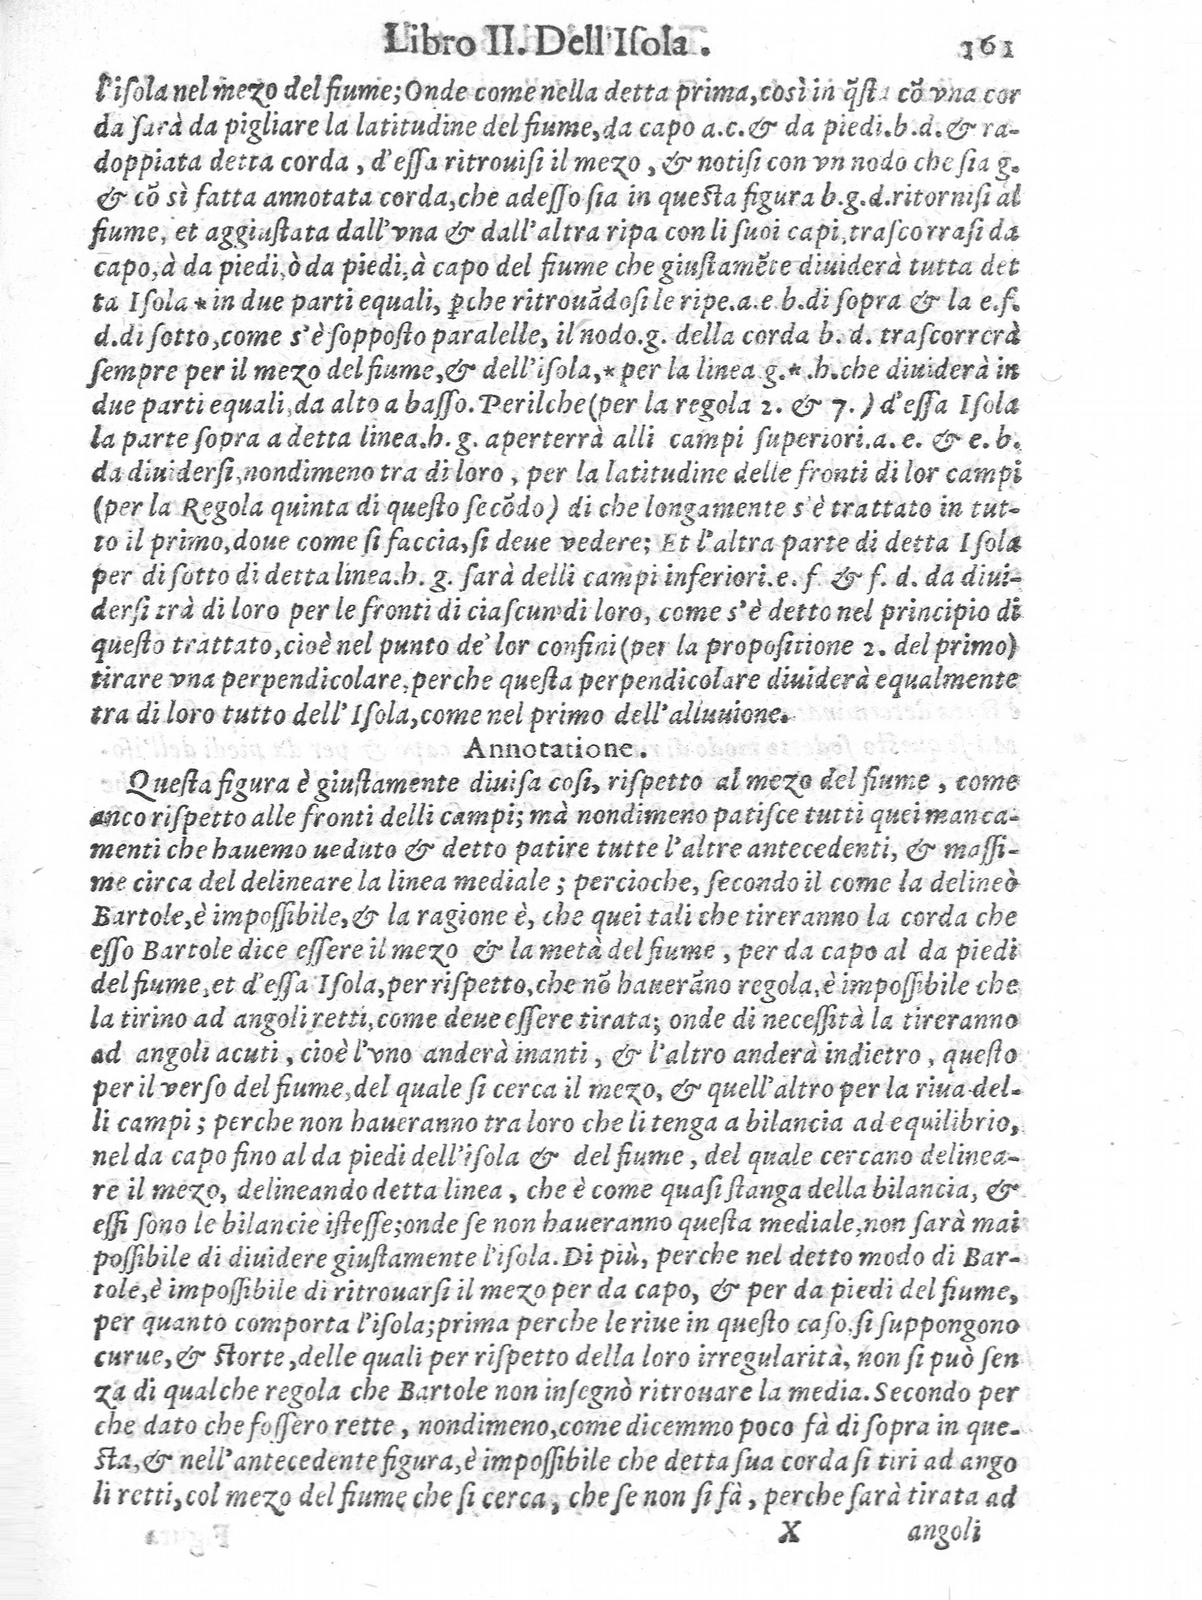 Libro II. Dell'Isola. 161
l'isola nel mezo del fiume; Onde come nella detta prima, così in q̃sta cõ vna cor
da sarà da pigliare la latitudine del fiume, da capo a.c. & da piedi. b.d. & ra-
doppiata detta corda, d'essa ritrouisi il mezo, & notisi con vn nodo che sia g.
& cõ sì fatta annotata corda, che adesso sia in questa figura b.g.d. ritornisi al
fiume, et aggiustata dall'vna & dall'altra ripa con li suoi capi, trascorrasi da
capo, à da piedi, ò da piedi, à capo del fiume che giustamẽte diuiderà tutta det
ta Isola * in due parti equali, ꝑche ritrouãdosi le ripe. a.e.b. di sopra & la e.f.
d. di sotto, come s'è sopposto paralelle, il nodo. g. della corda b. d. trascorrerà
sempre per il mezo del fiume, & dell'isola, * per la linea g. *. h. che diuiderà in
due parti equali, da alto a basso. Perilche (per la regola 2. & 7.) d'essa Isola
la parte sopra a detta linea. h. g. aperterrà alli campi superiori. a. e. & e. b.
da diuidersi, nondimeno tra di loro, per la latitudine delle fronti di lor campi
(per la Regola quinta di questo secõdo) di che longamente s'è trattato in tut-
to il primo, doue come si faccia, si deue vedere; Et l'altra parte di detta Isola
per di sotto di detta linea. h. g. sarà delli campi inferiori. e. f. & f. d. da diui-
dersi trà di loro per le fronti di ciascun di loro, come s'è detto nel principio di
questo trattato, cioè nel punto de' lor confini (per la propositione 2. del primo)
tirare vna perpendicolare, perche questa perpendicolare diuiderà equalmente
tra di loro tutto dell'Isola, come nel primo dell'alluuione.
Annotatione.
Questa figura è giustamente diuisa così, rispetto al mezo del fiume, come
anco rispetto alle fronti delli campi; mà nondimeno patisce tutti quei manca-
menti che hauemo ueduto & detto patire tutte l'altre antecedenti, & massi-
me circa del delineare la linea mediale; percioche, secondo il come la delineò
Bartole, è impossibile, & la ragione è, che quei tali che tireranno la corda che
esso Bartole dice essere il mezo & la metà del fiume, per da capo al da piedi
del fiume, et d'essa Isola, per rispetto, che nõ hauerãno regola, è impossibile che
la tirino ad angoli retti, come deue essere tirata; onde di necessità la tireranno
ad angoli acuti, cioè l'vno anderà inanti, & l'altro anderà indietro, questo
per il verso del fiume, del quale si cerca il mezo, & quell'altro per la riua del-
li campi; perche non haueranno tra loro che li tenga a bilancia ad equilibrio,
nel da capo fino al da piedi dell'isola & del fiume, del quale cercano delinea-
re il mezo, delineando detta linea, che è come quasi stanga della bilancia, &
essi sono le bilancie istesse; onde se non haueranno questa mediale, non sarà mai
possibile di diuidere giustamente l'isola. Di più, perche nel detto modo di Bar-
tole, è impossibile di ritrouarsi il mezo per da capo, & per da piedi del fiume,
per quanto comporta l'isola; prima perche le riue in questo caso, si suppongono
curue, & storte, delle quali per rispetto della loro irregolarità, non si può sen
za di qualche regola che Bartole non insegnò ritrouare la media. Secondo per
che dato che fossero rette, nondimeno, come dicemmo poco fà di sopra in que-
sta, & nell'antecedente figura, è impossibile che detta sua corda si tiri ad ango
li retti, col mezo del fiume che si cerca, che se non si fà, perche sarà tirata ad
X angoli